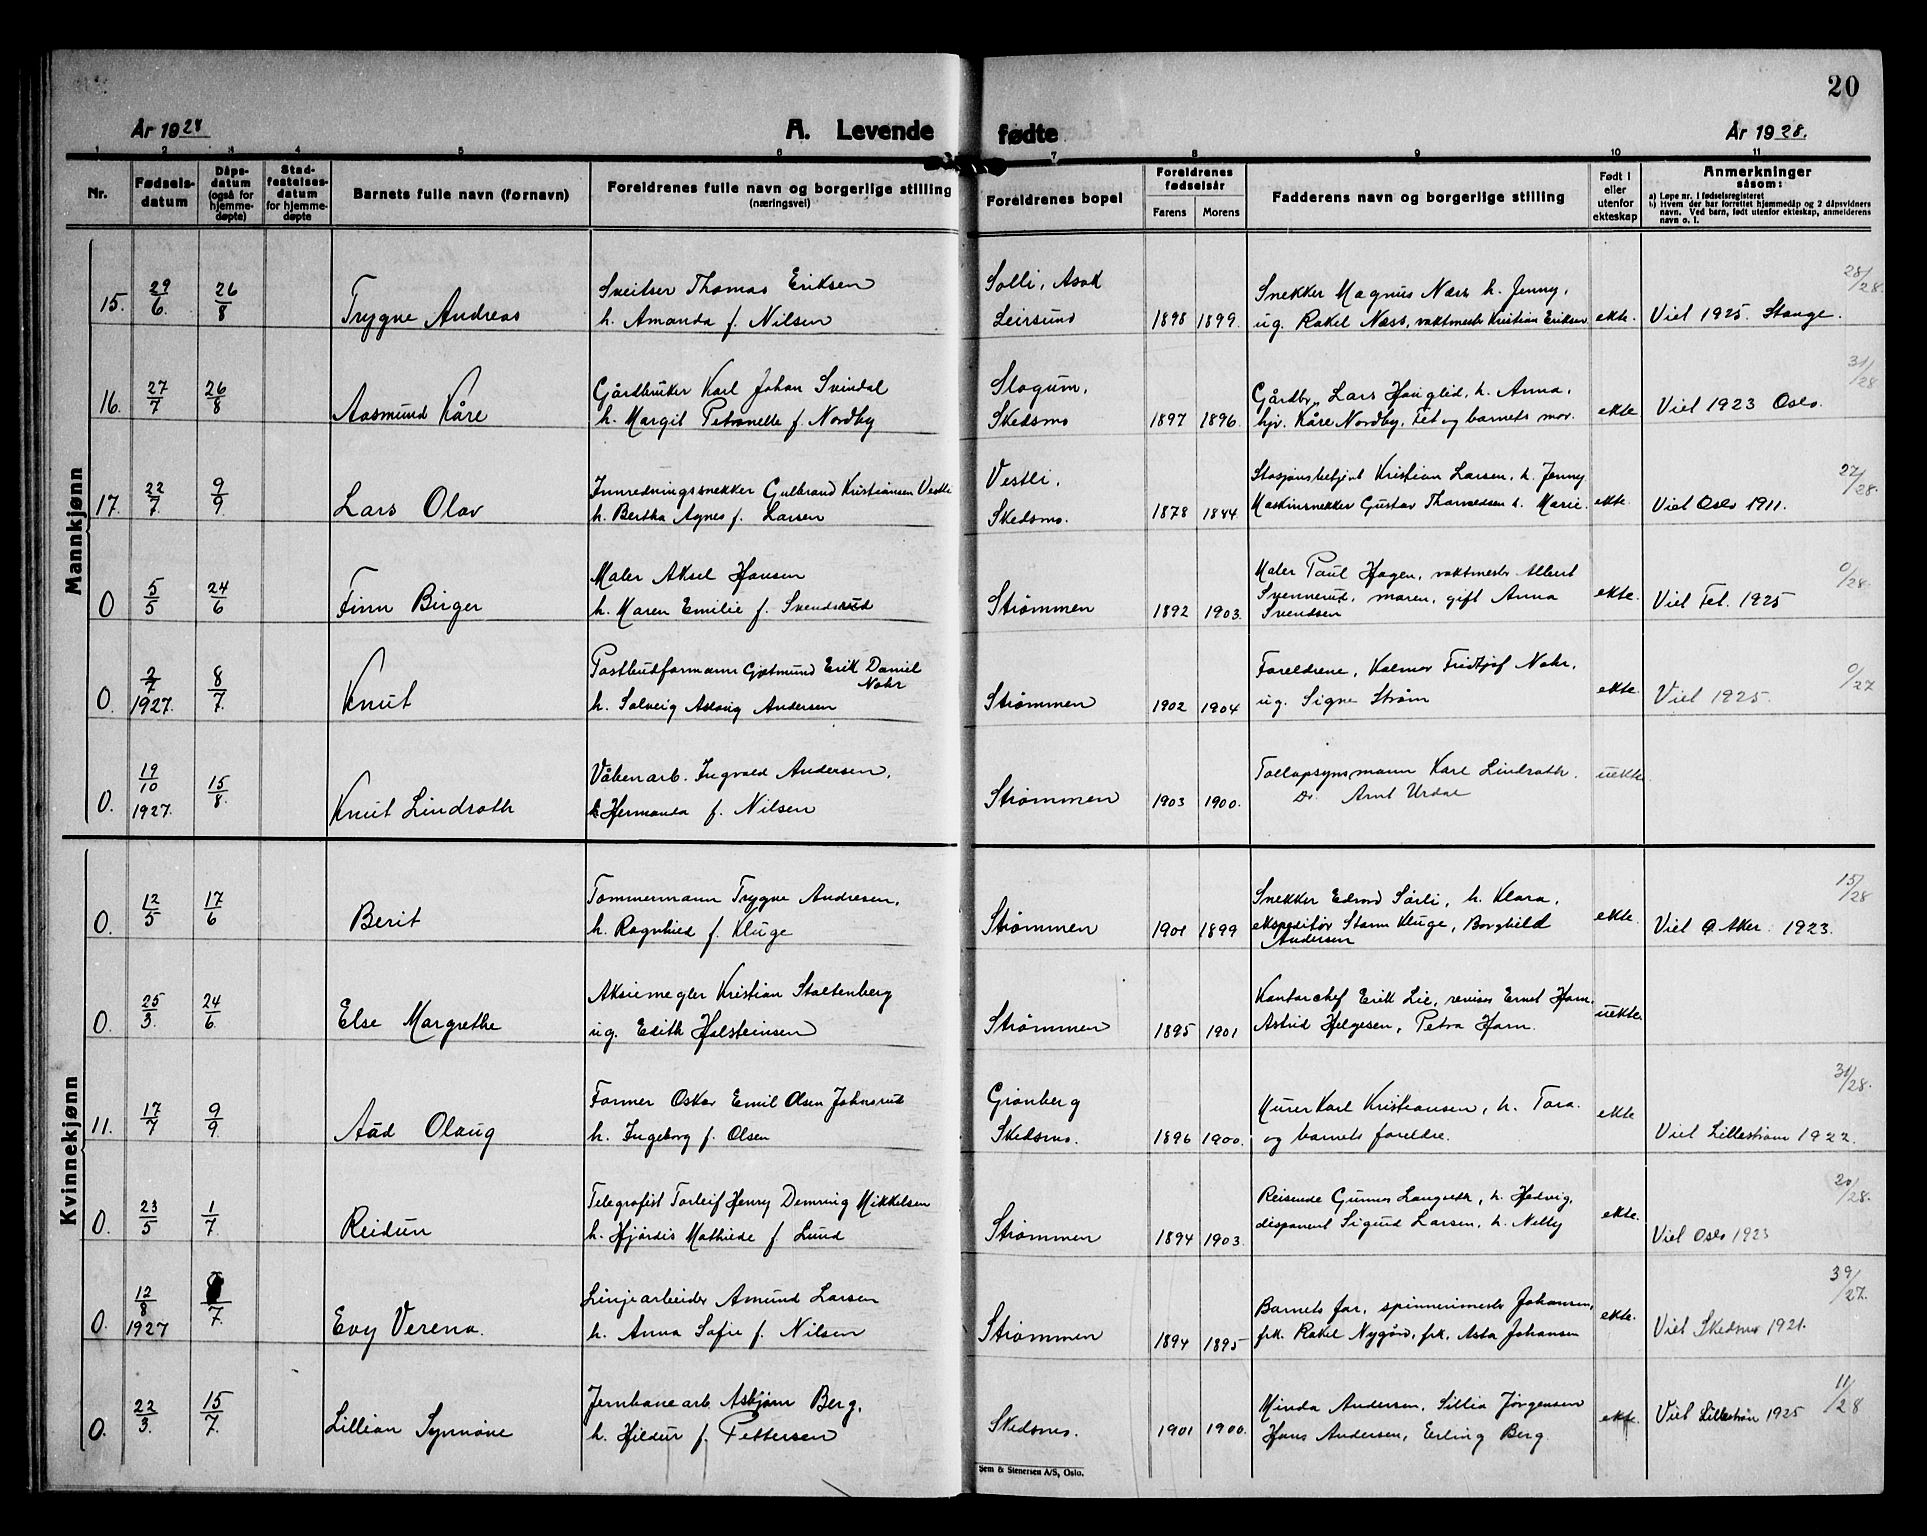 20
År 1928
A. Levende fødte
År 1928.
1 2 3 4 5 6 7 8 9 10 11
Nr.
Fødselsdatum
Dåpsdatum (også for hjemmedøpte)
Stadfestelsesdatum for hjemmedøpte
Barnets fulle navn (fornavn)
Foreldrenes fulle navn og borgerlige stilling
(næringsvei)
Foreldrenes bopel
Foreldrenes fødselsår
Farens Morens
Fadderens navn og borgerlige stilling
Født i eller utenfor ekteskap
Anmerkninger
såsom:
a) Løpe nr. i fødselsregisteret
b) Hvem der har forrettet hjemmedåp og 2 dåpsvidners
navn. Ved barn, født utenfor ekteskap, anmelderens
navn o. l.
Mannkjønn
29/6. 26/8 Sveitser Thomas Eriksen Solli, Asak Snekker Magnus Næss h. Jenny, 28/28.
15. Trygve Andreas h. Amanda f. Nilsen Leirsund 1898 1899. ug. Rakel Næss, vaktmester Kristian Eriksen ekte. Viet 1925. Stange.
27/7 26/8 Gårdbruker Karl Johan Svindal Slogum, Gårdbr. Lars Hauglid, h. Anna, 31/28
16. Aasmund Kåre h. Margit Petronelle f. Nordby Skedsmo 1897 1896. hjv. Kåre Nordby, Fet og barnets mor. ekte Viet 1923 Oslo.
22/7. 9/9 Innredningssnekker Gulbrand Kristiansen Vestli Vestli, Stasjonsbetjent Kristian Larsen, h. Jenny 27/28.
17. Lars Olav h. Bertha Agnes f. Larsen Skedsmo. 1878 1884 Maskinsnekker Gustav h. Marie. ekte. Viet Oslo 1911.
5/5 24/6 Maler Aksel Hansen Maler Paul Hagen, vaktmester Albert 0/28.
0 Finn Birger h. Maren Emilie f. Svendsrud Strømmen 1892 1903. Svennerud, moren, gift Anna ekte. Viet Fet. 1925
Svendsen
2/7 8/7. Postbudformann Gjetmund Erik Daniel Nohr Foreldrene, Kalmar Fridtjof Nohr, 0/27
0. 1927. Knut h. Solveig Aslaug Andersen Strømmen 1902 1904 ug. Signe Strøm ekte. Viet 1925.
19/10 15/8. Våbenarb. Ingvald Andersen, Tollopsynsmann Karl Lindroth. uekte.
0. 1927. Knut Lindroth Hermanda f. Nilsen Strømmen 1903 1900. Dr. Arnt Urdal
Kvinnekjønn
12/5 17/6 Tømmermann Trygve Andresen, Snekker Edvard Sørli, h. Klara, 15/28
0. Berit h. Ragnhild f. Kluge Strømmen 1901 1899 ekspeditør Kluge, Borghild ekte. Viet Ø Aker. 1923.
Andersen
25/3. 24/6. Aksiemegler Kristian Stoltenberg Kontorchef Erik Lie, revisor Ernst Horn.
0. Else Margrethe ug. Edith Holsteinsen Strømmen 1895 1901 Astrid Helgesen, Petra Horn. uekte.
17/7 9/9 Former Oskar Emil Olsen Johnsrud Grønberg Murer Karl Kristiansen, h. Tora. 31/28.
11. Aud Olaug h. Ingeborg f. Olsen Skedsmo. 1896 1900. og barnets foreldre. ekte Viet Lillestrøm 1922.
23/5 1/7. Telegrafist Torleif Henry Demring Mikkelsen Reisende Gunnar Langseth, h. Hedvig, 20/28.
0. Reidun h. Hjørdis Mathilde f Lund Strømmen 1894 1903. disponent Sigurd Larsen, h. Nelly ekte. Viet Oslo 1923
12/8 /7. Linjearbeider Amund Larsen Barnets far, spinnerimester Johansen, 39/27.
0. 1927 Evy Verena. h. Anna Sofie f. Nilsen Strømmen 1894 1895 frk. Rakel Nygård, frk. Asta Johansen ekte. Viet Skedsmo 1921.
22/3. 15/7. Jernbanearb. Asbjørn Berg, Minda Andersen, Sillia Jørgensen 11/28
0. Lillian Synnøve h. Hildur f. Pettersen Skedsmo. 1901 1900. Hans Andersen, Erling Berg. ekte. Viet Lillestrøm 1925
Sem & Stenersen A/S, Oslo.